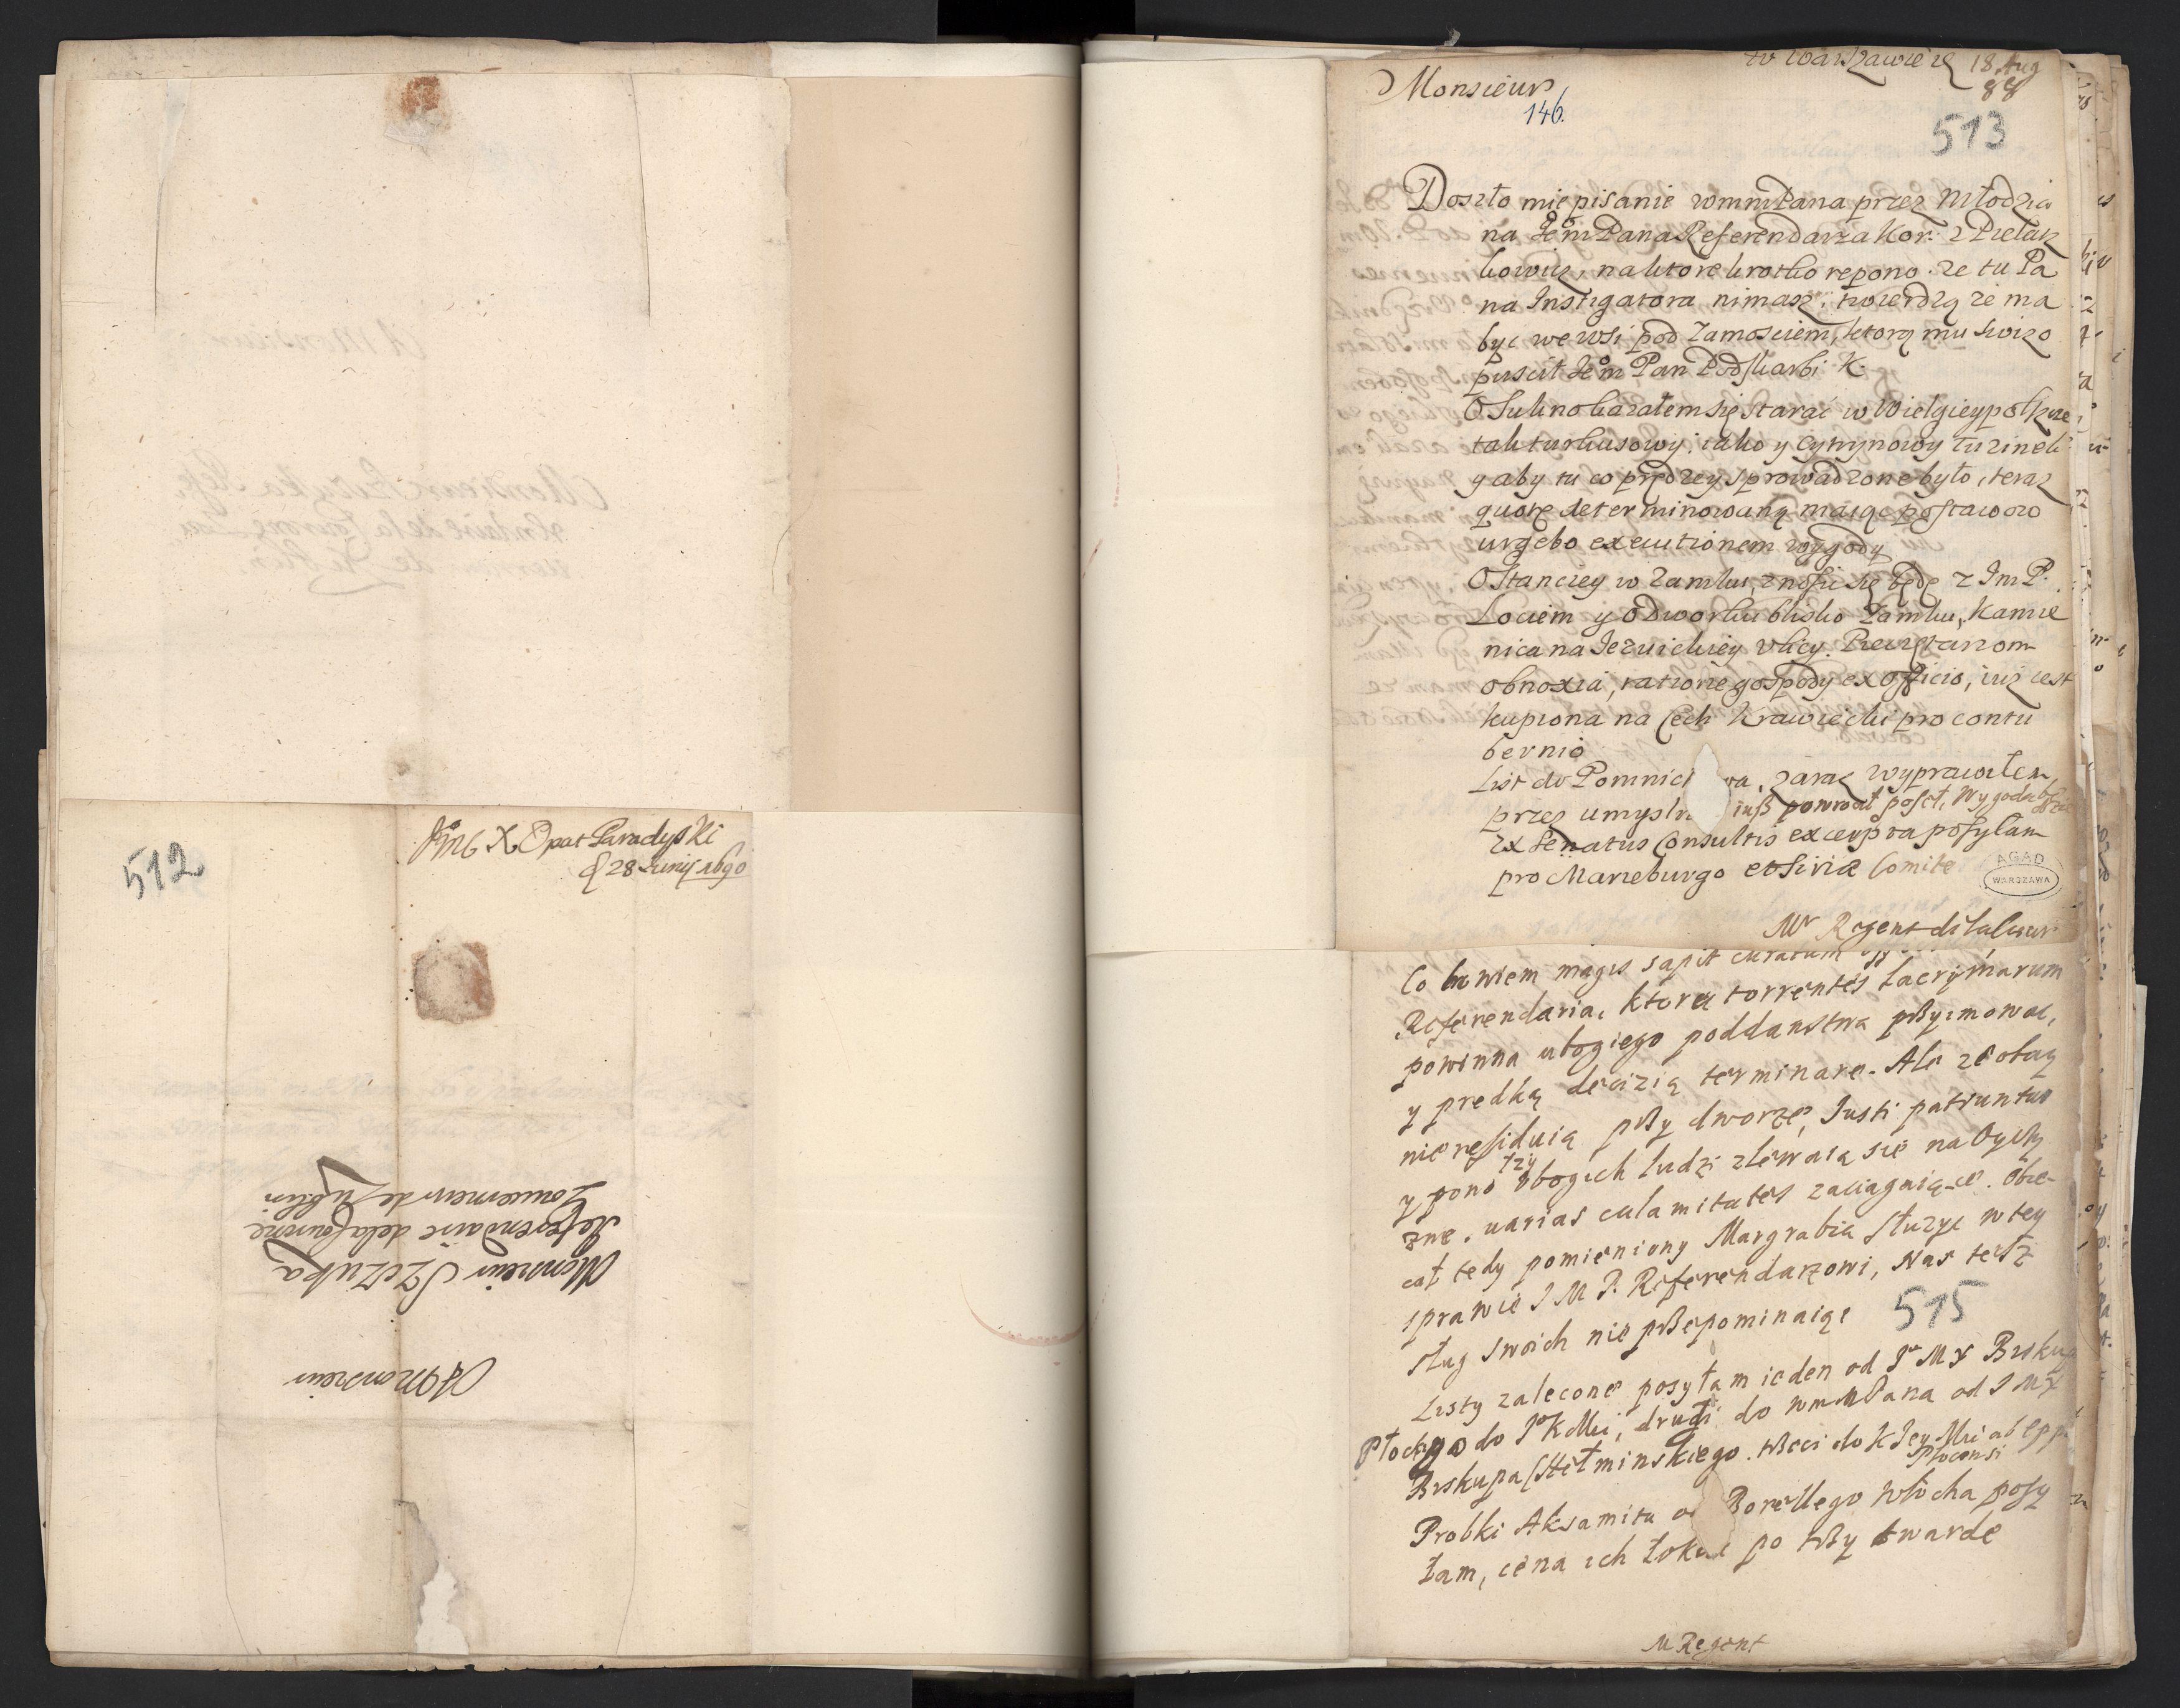 512
JmC X Opat Paradyski
d 28 Junij 1690
A Monsieur
Monsieur Szczuka
Referendaire de la Couronne
Gouverneur de Lublin
w Warszawie 18 Aug
88
Monsieur
146.
513
Doszło mie pisanie wmmPana przez Młodzia
na JemPana Referendarza Kor: z Pielasz
kowicz, na ktore krotko repono. ze tu Pa
na Instigatora nimasz, twierdzą ze ma
byc we wsi pod Zamosciem, ktorą mu swizo
puscił Jem Pan Podskarbi K.
O Sukno kazałem się starać w Wielgieypolszcze
tak turkusowy, iako y cytrynowy tuzinek
y aby tu co prędzey sprowadzone było, teraz
quotę determinowaną maiąc postawow
urgebo executionem wygody
O Stanczey w Zamku, znosic się będę z Jm P.
Łociem y o dworku blisko Zamku, Kamie
nica na Jezuickiey ulicy
obnoxia, ratione gospody ex officio, iuz iest
kupiona na Cech Krawiecki pro contu
bernio
List do zaraz wyprawiłem,
przez iusz powrocił poseł, Wygoda
Ex Senatus Consultis excerpta posyłam
pro Marieburgo et Comite
AGAD
WARSZAWA
Mr Regent
Co bowiem magis sapit curatum
Referendaria, ktora torrentes lacrymarum
powinna ubogiego poddanstwa przyimowac,
y predką decizią terminare. Ale ze obay
nie residuią przy dworze, Justi patiuntur
y pono łzy ubogich ludzi zlewaią się na Oyczy
znę, varias calamitates zaciągaiące. Obie-
cał tedy pomieniony Margrabia służyc w tey
sprawie J M P. Referendarzowi, Nas tesz
sług swoich nie przepominaiąc
515
Listy zalecone posyłam ieden od Jo M X Biskup
Płockgo do Jo K Mci, drugi do wmmPana od J M X
Biskupa Chełminskiego. trzeci do K Jey Mci ab Epp
Plocensi
Probki Aksamitu od Borellego Włocha posy
łam, cena ich po trzy twarde
M Regent